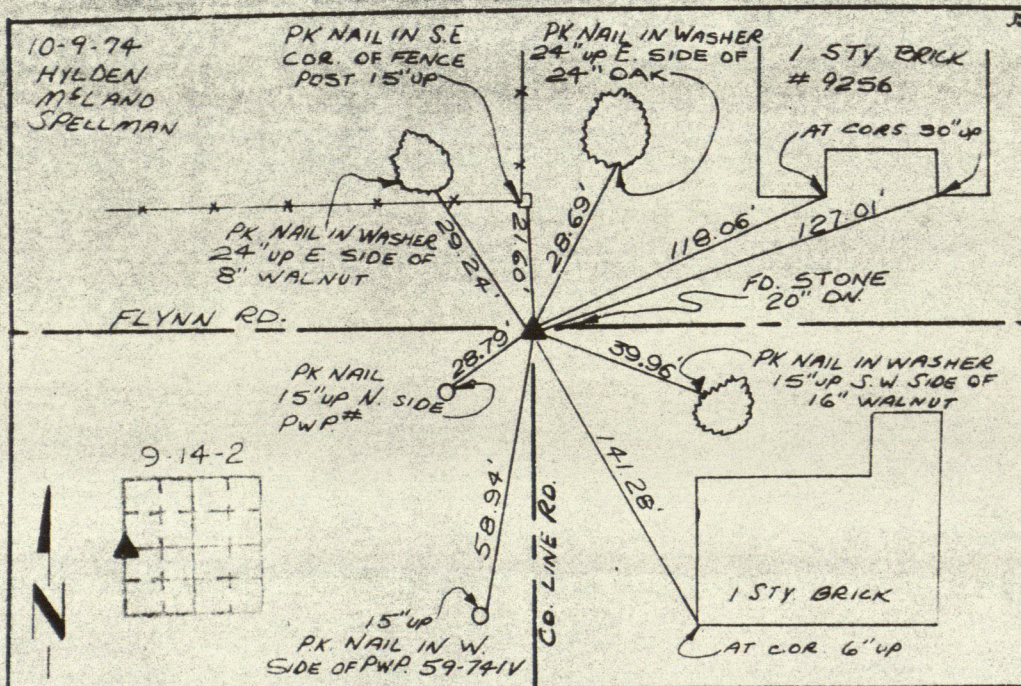 10-9-74
HYLDEN
McLAND
SPELLMAN
PK NAIL IN S.E
COR. OF FENCE
POST 15" UP
PK NAIL IN WASHER
24" UP E. SIDE OF
24" OAK
1 STY BRICK
# 9256
AT CORS 30" UP
PK NAIL IN WASHER
24" UP E. SIDE OF
8" WALNUT
29.24'
21.60'
28.69'
118.06'
127.01'
FD. STONE
20" DN.
FLYNN RD.
28.79'
39.96'
PK NAIL
15" UP N. SIDE
PWP#
PK NAIL IN WASHER
15" UP S.W. SIDE OF
16" WALNUT
9-14-2
58.94'
141.28'
CO. LINE RD.
N
1 STY BRICK
15" UP
PK NAIL IN W.
SIDE OF PWP. 59-741V
AT COR 6" UP